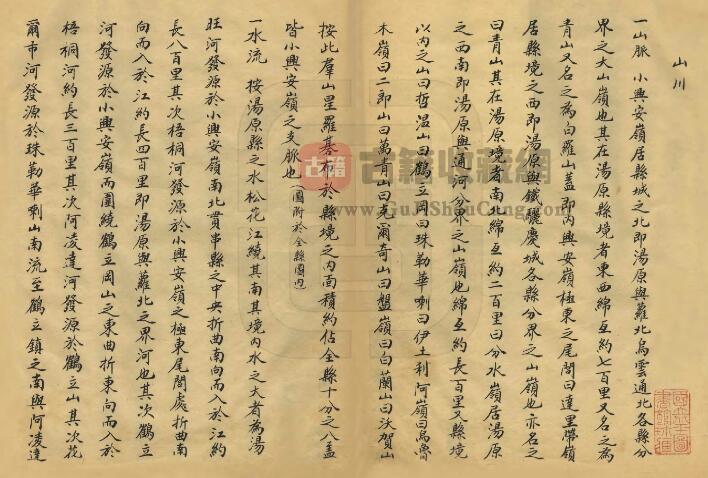 山川
一山脈 小興安嶺居縣城之北即湯原與蘿北烏雲通北各縣分
界之大山嶺也其在湯原縣境者東西綿亙約七百里又名之為
青山又名之為白羅山蓋即內興安嶺極東之尾閭曰達里帶嶺
居縣境之西即湯原與鐵驪慶城各縣分界之山嶺也亦名之
曰青山其在湯原境者南北綿亙約二百里曰分水嶺居湯原
之西南即湯原與通河分界之山嶺也綿亙約長百里又縣境
以內之山曰哲温山曰鶴立岡曰珠勒華喇曰伊土利阿嶺曰烏魯
木嶺曰二郎山曰萬青山曰克爾奇山曰盤嶺曰白蘭山曰沃賀山
按此羣山星羅棊布於縣境之內面積約佔全縣十分之八蓋
皆小興安嶺之支脈也（圖附於全縣圖內
一水流 按湯原縣之水松花江繞其南其境內水之大者為湯
旺河發源於小興安嶺南北貫串縣之中央折曲南向而入於江約
長八百里其次梧桐河發源於小興安嶺之極東尾閭處折曲南
向而入於江約長四百里即湯原與蘿北之界河也其次鶴立
河發源於小興安嶺而圍繞鶴立岡山之東曲折東向而入於
梧桐河約長三百里其次阿凌達河發源於鶴立山其次花
爾布河發源於珠勒華喇山南流至鶴立鎮之南與阿凌達
古籍
古籍收藏網
www.GuJiShouCang.com